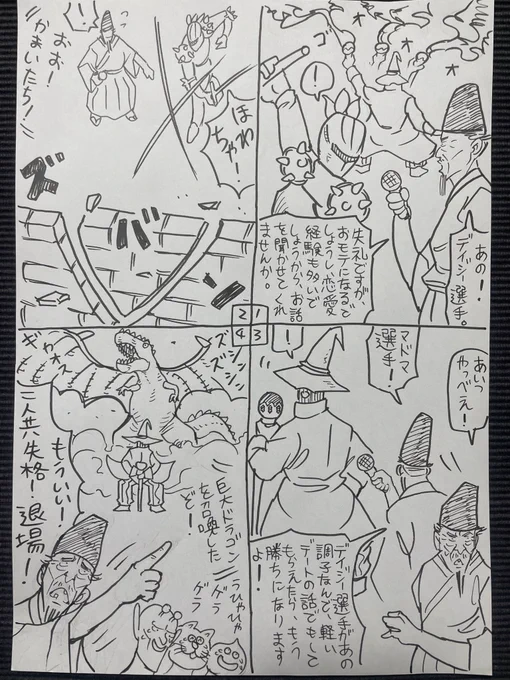 ゴ
オ
オ
！
あの！
デイジー選手。
失礼ですが、
おモテになるで
しょうし、恋愛
経験も多いで
しょうから、お話
を聞かせてくれ
ませんか。
2 1
4 3
ほわ
ちゃ！
！
おお！
かまいたち！
ズ
バ
ッ
あいつ
やっべえ！
マドマ
選手！
！
デイジー選手があの
調子なんで、軽い
デートの話でもして
もらえたら、もう
勝ちになります
よ！
ズシン
ズシン
ギャオス
巨大ドラゴン
を召喚した
ど！
うひゃひゃ
ゲラ
ゲラ
もういい！
二人共失格！退場！